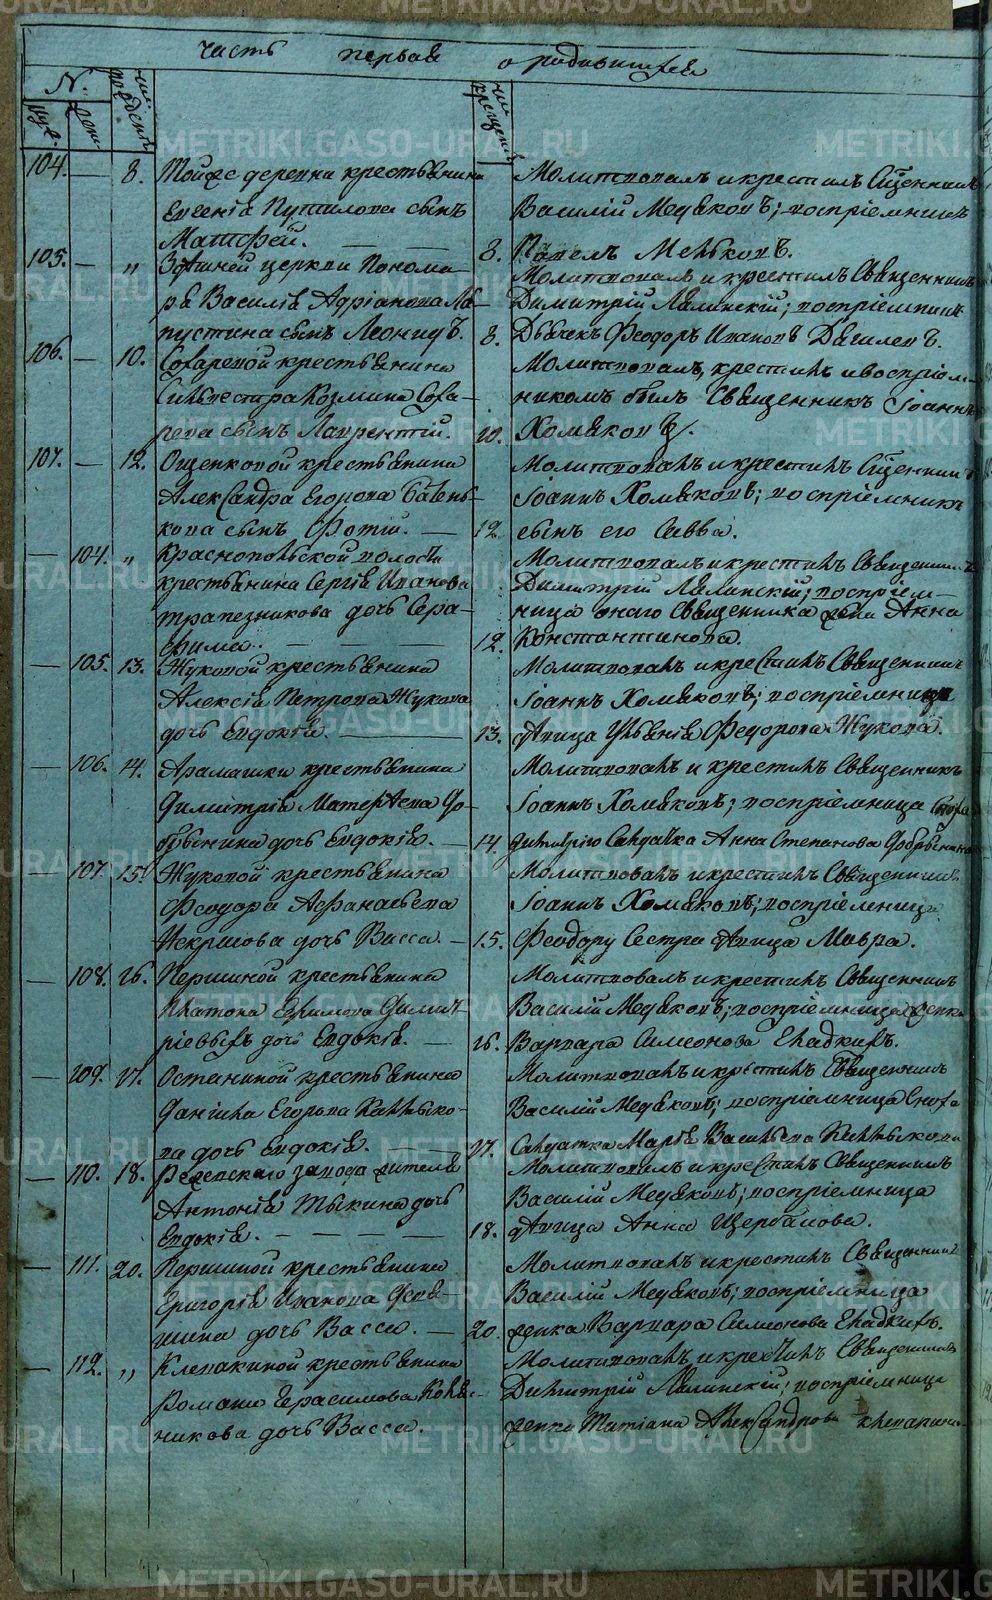 METRIKI.GASO-URAL.RU
часть первая о родившихся
N.
муж.
жен.
числ. рожденія
числ. крещенія
104. — 8. Тойже деревни крестьянина
Евсевія Путилова сынъ
Матфей.
Молитвовалъ и крестилъ Сщенникъ
Василій Медяковъ; воспріемникъ
8. Павелъ Меньковъ.
105. — „ Здѣшней церкви Понома-
ря Василія Адріанова Ла-
пустина сынъ Леонидъ.
Молитвовалъ и крестилъ Священникъ
Димитрій Ляпинскій; воспріемникъ
8. Дьячекъ Феодоръ Ивановъ
106. — 10. крестьянина
Сильвестра Козмина
сынъ Лаврентій.
Молитвовалъ, крестилъ и воспріем-
никомъ былъ Священникъ Іоаннъ
10. Хомяковъ.
107. — 12. Ощепковой крестьянина
Александра Егорова Бабень-
кова сынъ Фотій.
Молитвовалъ и крестилъ Сщенникъ
Іоаннъ Хомяковъ; воспріемникъ
12. сынъ его Савва.
— 104. „ Краснопольской волости
крестьянина Сергія Иванова
трапезникова дочь Сера-
фима.
Молитвовалъ и крестилъ Священникъ
Димитрій Ляпинскій; воспріем-
ница онаго Священника Анна
12. Константинова.
— 105. 13. Жуковой крестьянина
Алексія Петрова Жукова
дочь Евдокія.
Молитвовалъ и крестилъ Священникъ
Іоаннъ Хомяковъ; воспріемница
13. дѣвица Ульянія Федорова Жукова.
— 106. 14. Арамашки крестьянина
Димитрія Матѳѣева Фо-
дочь Евдокія.
Молитвовалъ и крестилъ Священникъ
Іоаннъ Хомяковъ; воспріемница
14. Анна Степанова
— 107. 15. Жуковой крестьянина
Феодора Афанасьева
Некрасова дочь Васса.
Молитвовалъ и крестилъ Священникъ
Іоаннъ Хомяковъ; воспріемница
15. Феодору Сестра дѣвица Мавра.
— 108. 16. Першиной крестьянина
Платона Ефимова Димит-
ріевыхъ дочь Евдокія.
Молитвовалъ и крестилъ Священникъ
Василій Медяковъ; воспріемница женка
16. Варвара Симеонова Гладкихъ.
— 109. 17. Останиной крестьянина
Даніила Егорова
дочь Евдокія.
Молитвовалъ и крестилъ Священникъ
Василій Медяковъ; воспріемница Сноха
17. Солдатка Марія Васильева
— 110. 18. Режевскаго завода жителя
Антонія Тыкина дочь
Евдокія.
Молитвовалъ и крестилъ Священникъ
Василій Медяковъ; воспріемница
18. дѣвица Анна Щербакова.
— 111. 20. Першиной крестьянина
Григорія Иванова
дочь Васса.
Молитвовалъ и крестилъ Священникъ
Василій Медяковъ; воспріемница
20. женка Варвара Симионова Гладкихъ.
— 112. „ Клевакиной крестьянина
Романа Герасимова
никова дочь Васса.
Молитвовалъ и крестилъ Священникъ
Димитрій Ляпинскій; воспріемница
женка Татіана Александрова